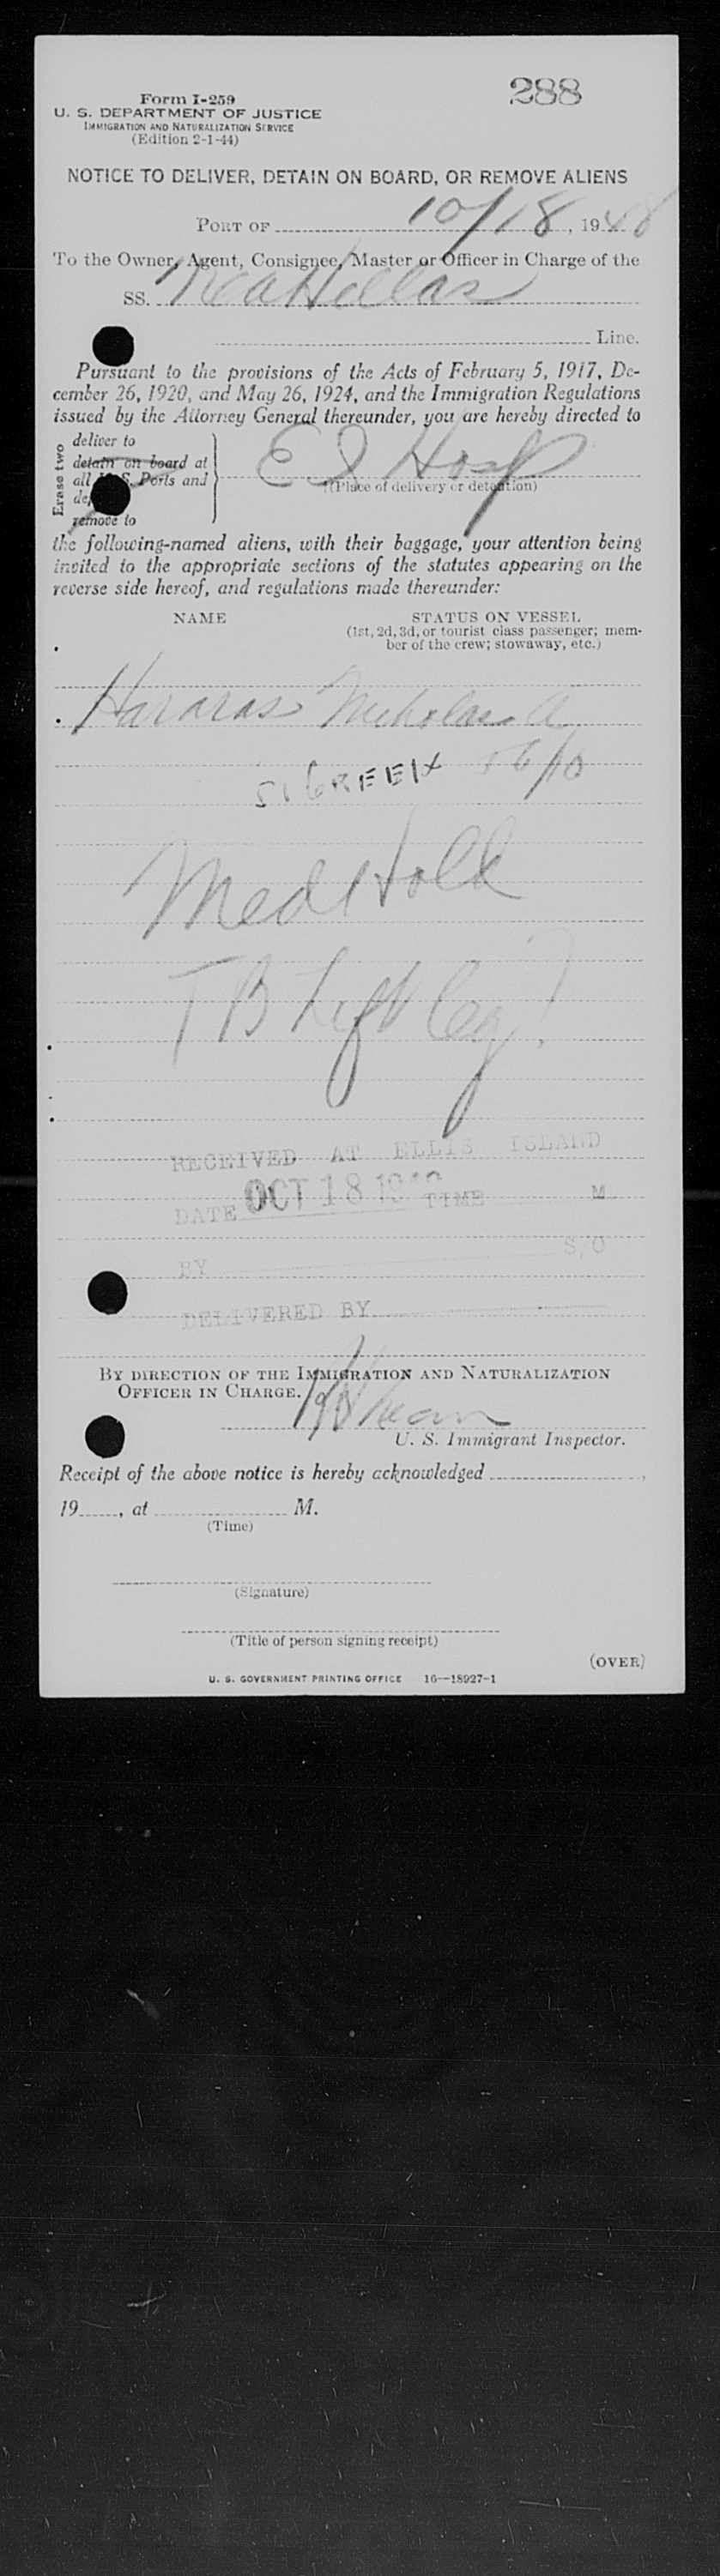 288
Form I-259
U. S. DEPARTMENT OF JUSTICE
IMMIGRATION AND NATURALIZATION SERVICE
(Edition 2-1-44)
NOTICE TO DELIVER, DETAIN ON BOARD, OR REMOVE ALIENS
PORT OF 10/18, 1948
To the Owner, Agent, Consignee, Master or Officer in Charge of the
SS. Nea Hellas
Line.
Pursuant to the provisions of the Acts of February 5, 1917, De-
cember 26, 1920, and May 26, 1924, and the Immigration Regulations
issued by the Attorney General thereunder, you are hereby directed to
Erase two
deliver to
detain on board at
all U.S. Ports and
remove to
E I Hosp
(Place of delivery or detention)
the following-named aliens, with their baggage, your attention being
invited to the appropriate sections of the statutes appearing on the
reverse side hereof, and regulations made thereunder:
NAME STATUS ON VESSEL
(1st, 2d, 3d, or tourist class passenger; mem-
ber of the crew; stowaway, etc.)
Hararas Nicholas A
51 GREEK 56/10
Med Hold
TB Left leg?
RECEIVED AT ELLIS ISLAND
DATE OCT 18 1948 TIME M
BY S/O
DELIVERED BY
BY DIRECTION OF THE IMMIGRATION AND NATURALIZATION
OFFICER IN CHARGE.
U. S. Immigrant Inspector.
Receipt of the above notice is hereby acknowledged ,
19 , at M.
(Time)
(Signature)
(Title of person signing receipt)
(OVER)
U. S. GOVERNMENT PRINTING OFFICE 16—18927-1